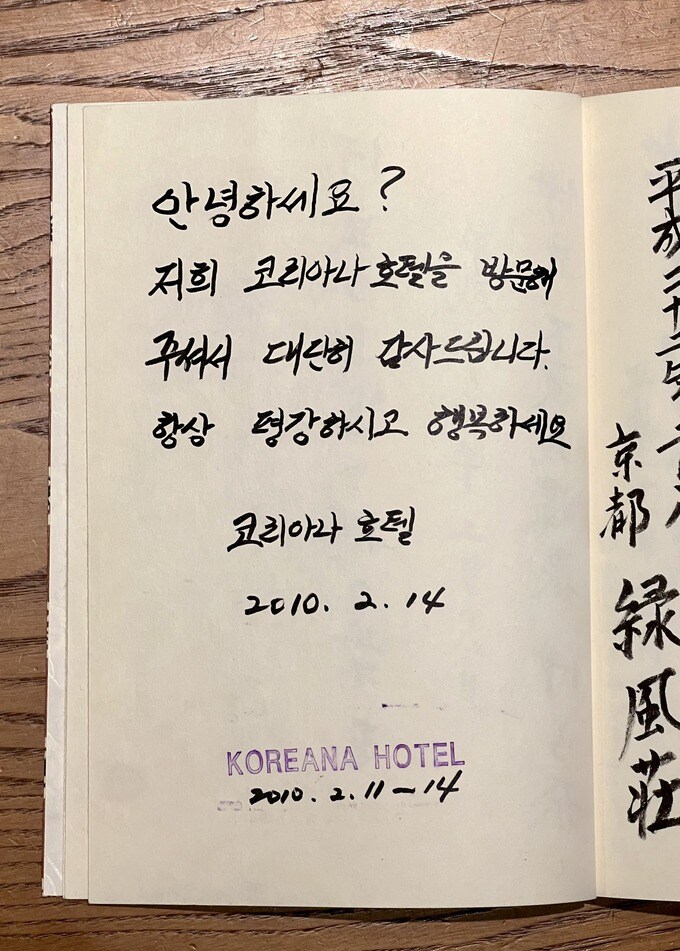 안녕하세요?
저희 코리아나 호텔을 방문해
주셔서 대단히 감사드립니다.
항상 평강하시고 행복하세요
코리아나 호텔
2010. 2. 14
KOREANA HOTEL
2010. 2. 11~14
平成二十二年二月
京都
緑風荘